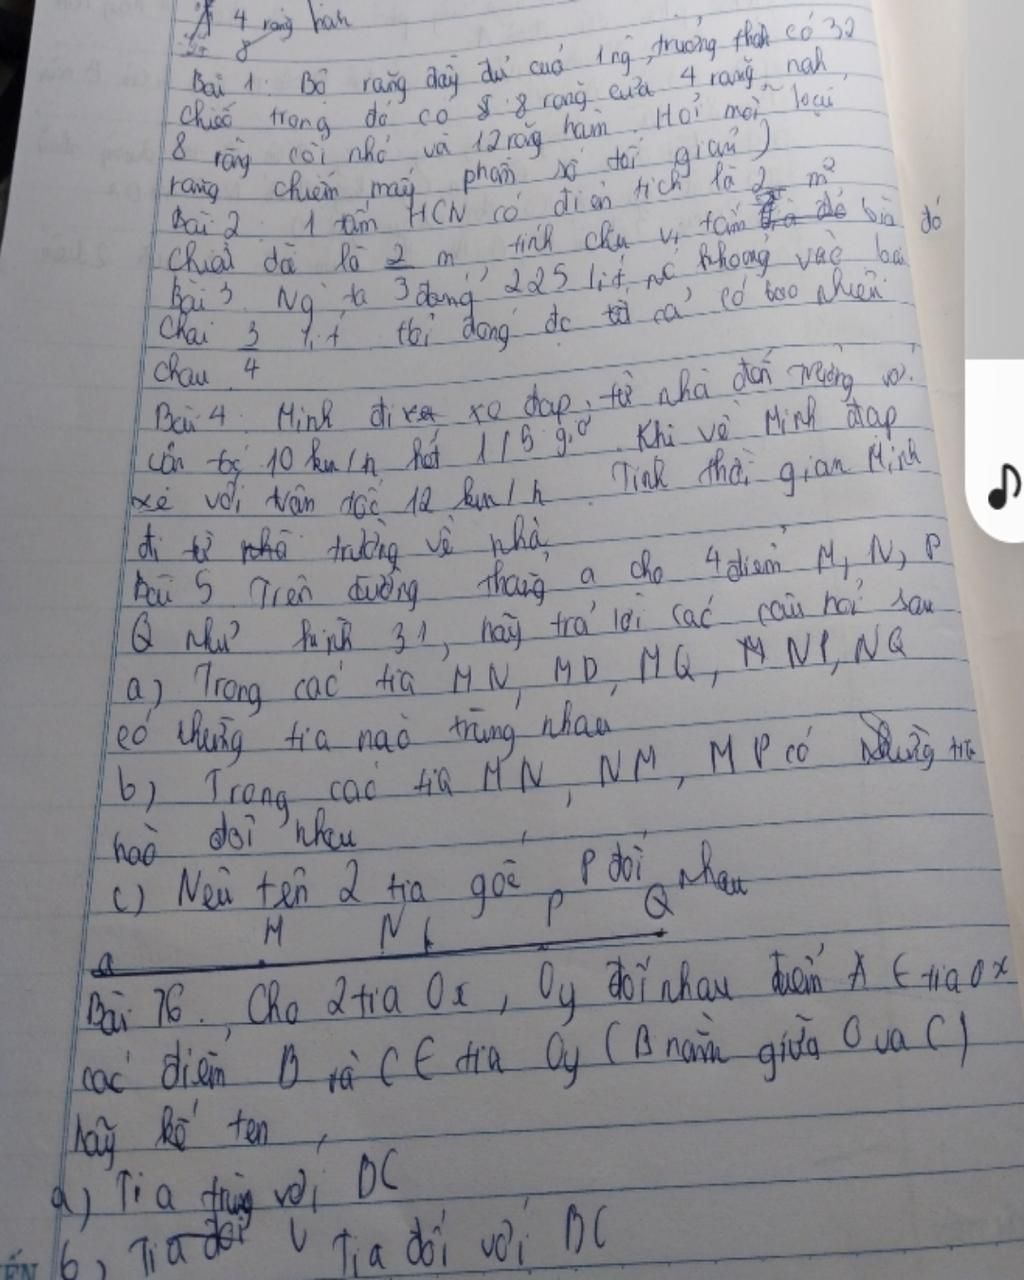 4 răng nanh
8
Bài 1. Bộ răng đầy đủ cuả 1 ng, trưởng thành có 32
chiếc trong đó có 8 răng cửa 4 răng nah
8 răng cối nhỏ và 12 răng hàm. Hỏi mỗi loại
răng chiếm mấy phân số tối giản)
Bài 2. 1 tấm HCN có diện tích là 2 m²
chiều dà là 2 m tính chu vi tấm bìa đó
Bài 3. Ng ta đóng 225 lít nc khoáng vào loại
chai 3/4 lít thì đóng đc tất cả có bao nhiên
chau
Bài 4. Minh đi xe đap, từ nhà đến trường với
vân tốc 10 km/h hết 1/5 giờ. Khi về Minh đạp
xe với vân tốc 12 km/h. Tính thời gian Minh
đi từ trường về nhà
Bài 5 Trên đường thẳng a cho 4 điểm M, N, P
Q như hình 31, hãy trả lời các câu hỏi sau
a) Trong các tia MN, MP, MQ, NP, NQ
có những tia nào trùng nhau
b) Trong các tia MN, NM, MP có những tia
nào đối nhau
c) Nêu tên 2 tia gốc P đối nhau
M N P Q
a
Bài 76. Cho 2 tia Ox, Oy đối nhau điểm A ∈ tia Ox
các điểm B và C ∈ tia Oy (B nằm giữa O va C)
hãy kể ten
a) Tia trùng với BC
b) Tia đối với BC